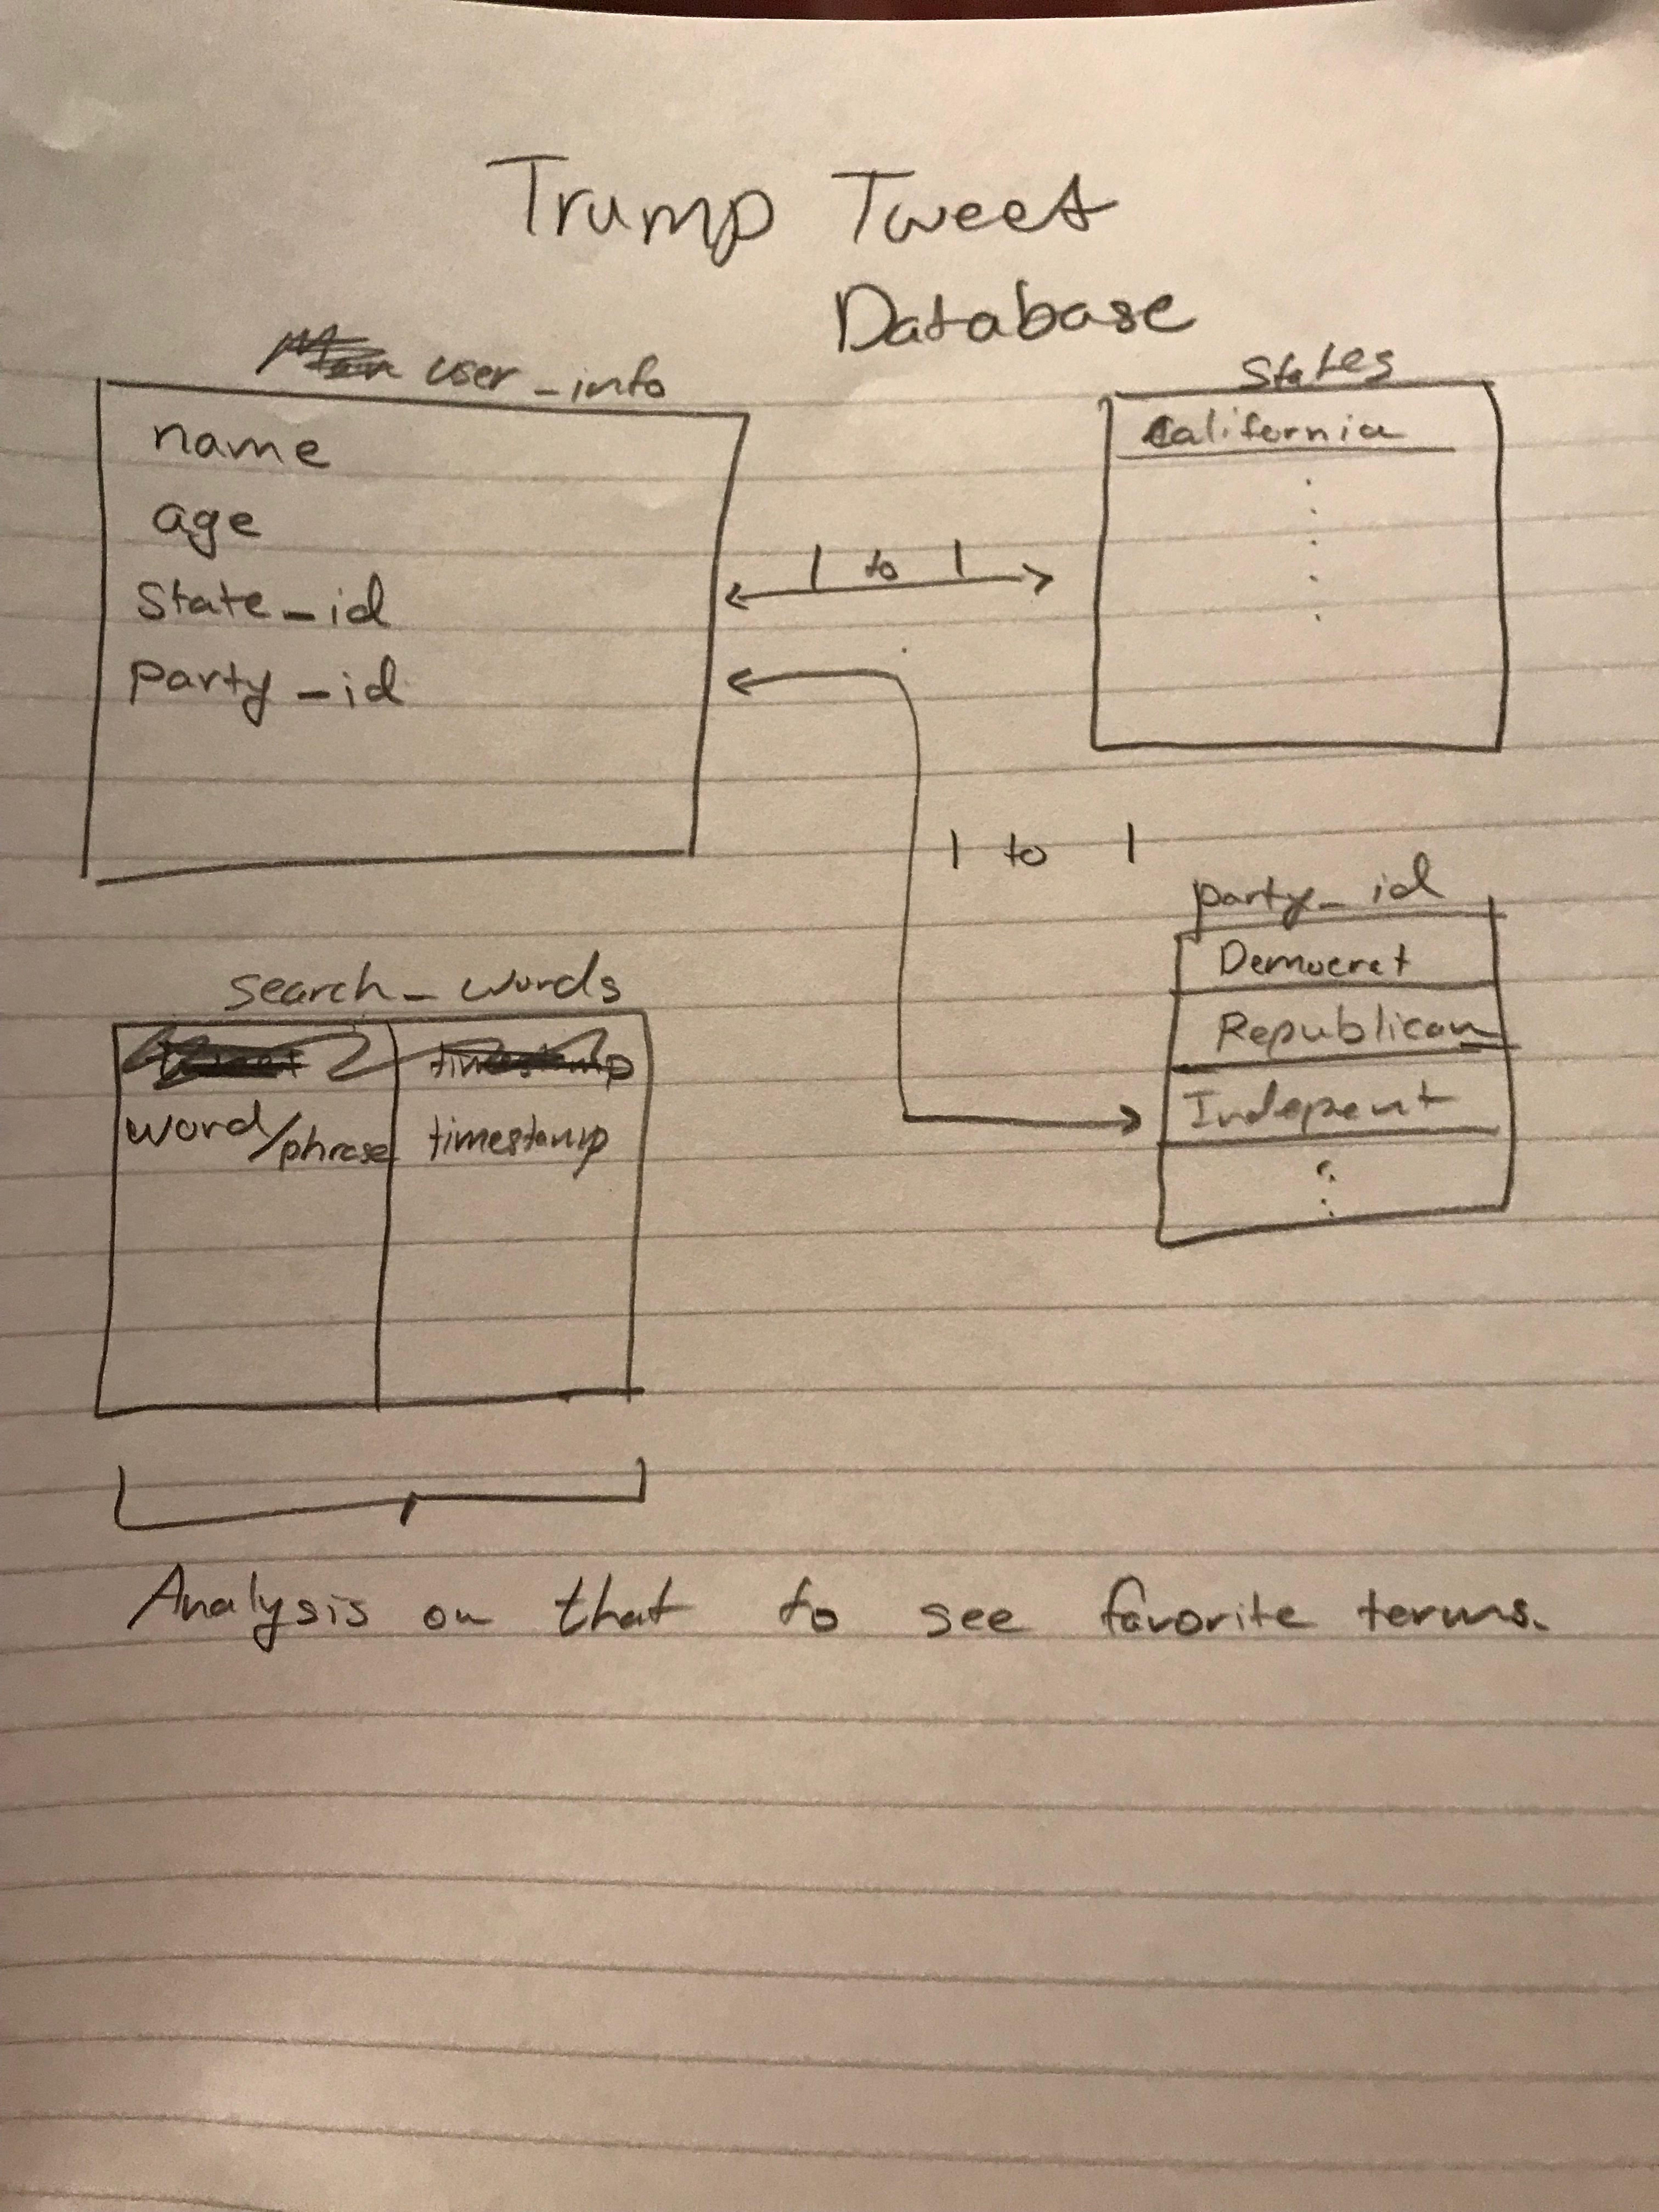 Trump Tweet
Database
user_info
name
age
State_id
Party_id
1 to 1
States
California
1 to 1
party_id
Democrat
Republican
Indepent
search_words
timestamp
word/phrase timestamp
Analysis on that to see favorite terms.